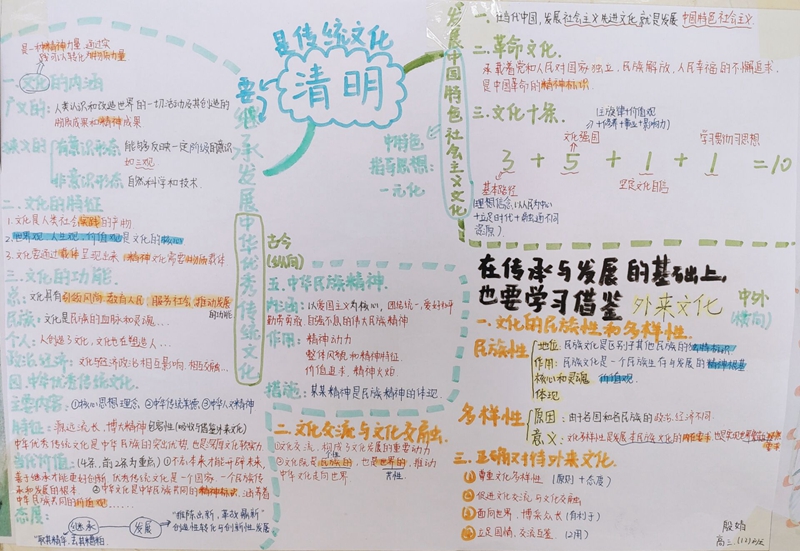 是传统文化
清明
要继承发展中华优秀传统文化
是一种精神力量，通过实
践可以转化为物质力量
一、文化的内涵
广义的：人类认识和改造世界的一切活动及其创造的
物质成果和精神成果
狭义的
有意识形态 能够反映一定阶级的意识
如三观
非意识形态 自然科学和技术
二、文化的特征
1.文化是人类社会实践的产物
2.世界观、人生观、价值观是文化的核心
3.文化要通过载体呈现出来，精神文化需要物质载体
三、文化的功能
总：文化具有引领风尚、教育人民、服务社会、推动发展
的功能
民族：文化是民族的血脉和灵魂…
个人：人创造了文化，文化也在塑造人…
政治经济：文化与经济政治相互影响，相互交融…
四、中华优秀传统文化
主要内容：①核心思想理念，②中华传统美德，③中华人文精神
特征：源远流长、博大精深
包容性(吸收与借鉴外来文化)
中华优秀传统文化是中华民族的突出优势，也是深厚文化软实力
当代价值：(4条，前2条为重点)
①不忘本来才能开辟未来，
善于继承才能更好创新，优秀传统文化是一个国家、一个民族传
承和发展的根本
②中华文化是中华民族共同的精神标识，涵养着
中华民族共同的价值观……
态度：
继承
发展
“推陈出新，革故鼎新”
创造性转化与创新性发展
“取其精华，去其糟粕
古今
(纵向)
五、中华民族精神
内涵：以爱国主义为核心，团结统一、爱好和平
勤劳勇敢、自强不息的伟大民族精神
作用：精神动力
整体风貌和精神特征
价值追求、精神火炬
措施：某某精神是民族精神的体现
二、文化交流与文化交融
①文化交流，构成了文化发展的重要动力
②文化既是民族的，也是世界的，推动
个性
共性
中华文化走向世界
发展中国特色社会主义文化
中特色
指导思想：
一元化
一、在当代中国，发展社会主义先进文化，就是发展中国特色社会主义
二、革命文化
承载着党和人民对国家独立、民族解放、人民幸福的不懈追求，
是中国革命的精神标识
三、文化十条
文化强国
学习贯彻习思想
3+5+1+1=10
基本路径
坚定文化自信
在传承与发展的基础上，
也要学习借鉴 外来文化
中外
(横向)
一、文化的民族性和多样性
民族性
地位：民族文化是区别于其他民族的独特标识
作用：民族文化是一个民族生存与发展的精神根基
核心和灵魂 价值观
体现
多样性
原因：由于各国和各民族的政治、经济不同
意义：文化多样性是发展本民族文化的内在要求，也是实现世界文化
三、正确对待外来文化
①尊重文化多样性 (原则+态度)
②促进文化交流与文化交融
③面向世界、博采众长(有利于)
④立足国情、交流互鉴 (2用)
高三